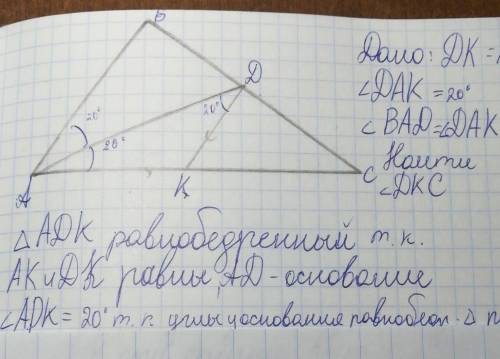 B
Дано: DK =
D
∠DAK = 20°
20°
20°
∠BAD = ∠DAK
20°
Найти
∠DKC
A
K
C
△ADK равнобедренный т.к.
AK и DK равны, AD - основание
∠ADK = 20° т.к. углы у основания равнобед. △